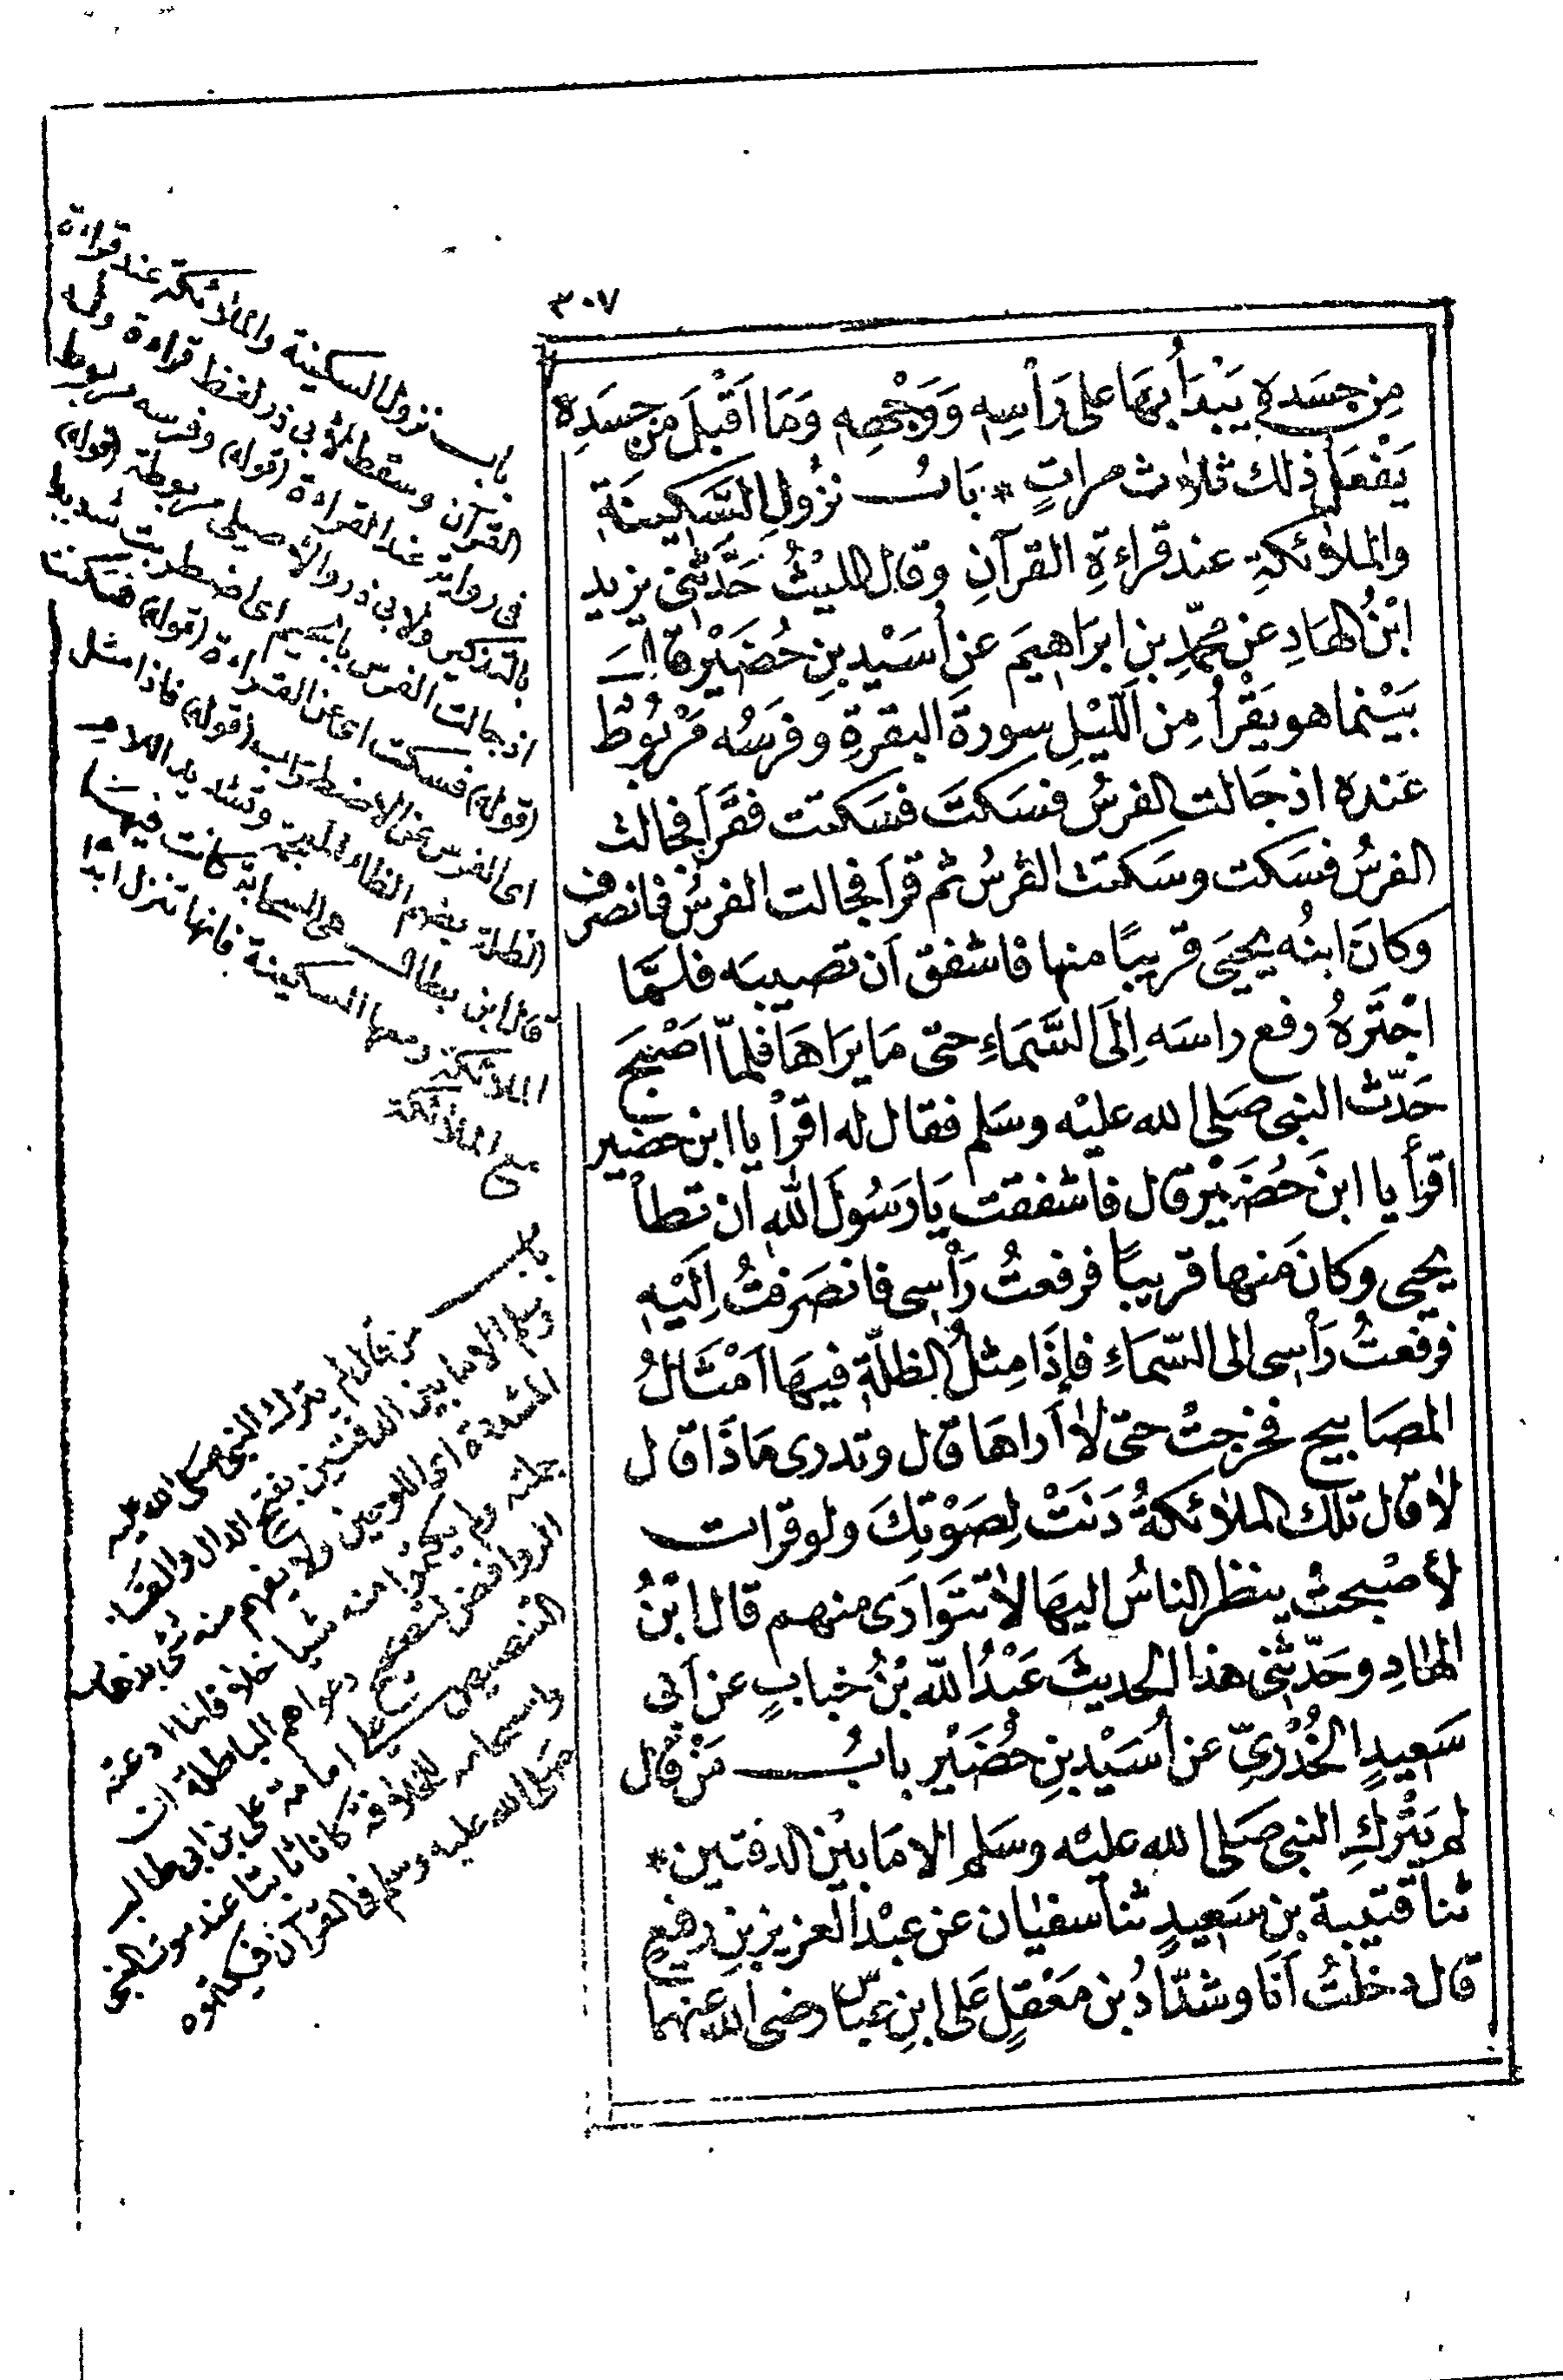 ٣٠٧
مِن جسَدهِ يَبْدَأُ بهَا على رَأسِهِ وَوَجْهِهِ وَمَا اَقْبلَ مِن جسَدِهِ
يَفْعَلُ ذلك ثلاث مراتٍ * بَابُ نزُولِ السَّكِينَةِ
والملائكةِ عند قراءةِ القرآنِ وقال الليْثُ حَدَّثَنى يزيد
ابْنُ الهَادِ عن محمّدِ بنِ ابرَاهيمَ عن أسَيْدِ بنِ حُضَيْرٍ قال
بَيْنما هو يَقْرأُ مِن اللّيْلِ سورةَ البقرةِ وفرَسُه مَرْبُوْطٌ
عندَه اذ جَالت الفرسُ فسَكتَ فسَكتت فقَرَأ فجالت
الفرسُ فسَكت وسَكتت الفَرسُ ثم قرأ فجالت الفرسُ فانصرف
وكانَ ابنُه يحيَى قريبًا منها فاشفق اَن تصيبَه فلمَّا
اجْترَّهُ رفع راسَه اِلَى السَّمَاءِ حتى مَا يرَاهَا فلمّا اَصْبَحَ
حَدّث النبى صَلى الله عليْه وسَلم فقال له اقرأْ يا ابن حضير
اقرأ يا ابنَ حُضَيْر قال فاشفقت يَا رَسُولَ اللهِ ان تطأ
يحيى وكانَ مَنها قريبًا فرفعتُ رَأسى فانصَرفتُ اِلَيْهِ
فرفعتُ رَأسى الى السّمَاءِ فإذَا مِثلُ الظلّةِ فيهَا اَمْثَالُ
المصَابيح فخرجتْ حتى لا أراهَا قال وتدرى مَاذَا قال
لا قال تلك الملائكةُ دَنَتْ لِصَوْتِكَ ولو قرات
لأصْبحتْ ينظر الناسُ اليهَا لا تتَوارَى منهم قال ابْنُ
الهادِ وحَدّثنى هذا الحديثَ عَبْدُ اللّه بْنُ خبابٍ عن أبى
سَعيدٍ الخُدْرِىِّ عن أسَيْدِ بنِ حُضَيْرٍ بابُ مَنْ قال
لم يَتْركِ النبى صَلى الله عليْه وسَلم الا مَا بيْن الدفتين *
ثنا قتيبة بن سَعيدٍ ثنا سفيان عن عبْد العزيز بنِ رفيعٍ
قال دخلتُ اَنَا وشدّادُ بن مَعْقلٍ عَلى ابنِ عبّاس رضى الله عنهما
باب نزول السكينة والملائكة عند قراءة
القرآن وسقط لأبى ذر لفظ قراءة وله
فى رواية عند القراءة (قوله) وفرسه مربوط
بالتذكير ولابى ذر والأصيلى مربوطة (قوله)
اذ جالت الفرس بالجيم اى اضطربت شديدا
(قوله) فسكت اى عن القراءة (قوله) فسكنت
اى الفرس عن الاضطراب (قوله) فاذا مثل
الظلة بضم الظاء المعجمة وتشديد اللام
قال ابن بطال هى السحابة كانت فيها
الملائكة ومعها السكينة فانها تنزل ابدا
مع الملائكة
باب من قال لم يترك النبى صلى الله عليه
وسلم الا ما بين الدفتين بفتح الدال والفاء
المشددة اى اللوحين ولا يفهم منه شئ بذهاب
جملته ولم يكتموا منه شيا خلافا لما ادعته
الروافض لتصحيح دعواهم الباطلة ان
التنصيص على امامة على بن ابى طالب
واستحقاقه للخلافة كان ثابتا عند موت النبى
صلى الله عليه وسلم فى القرآن فيكتموه